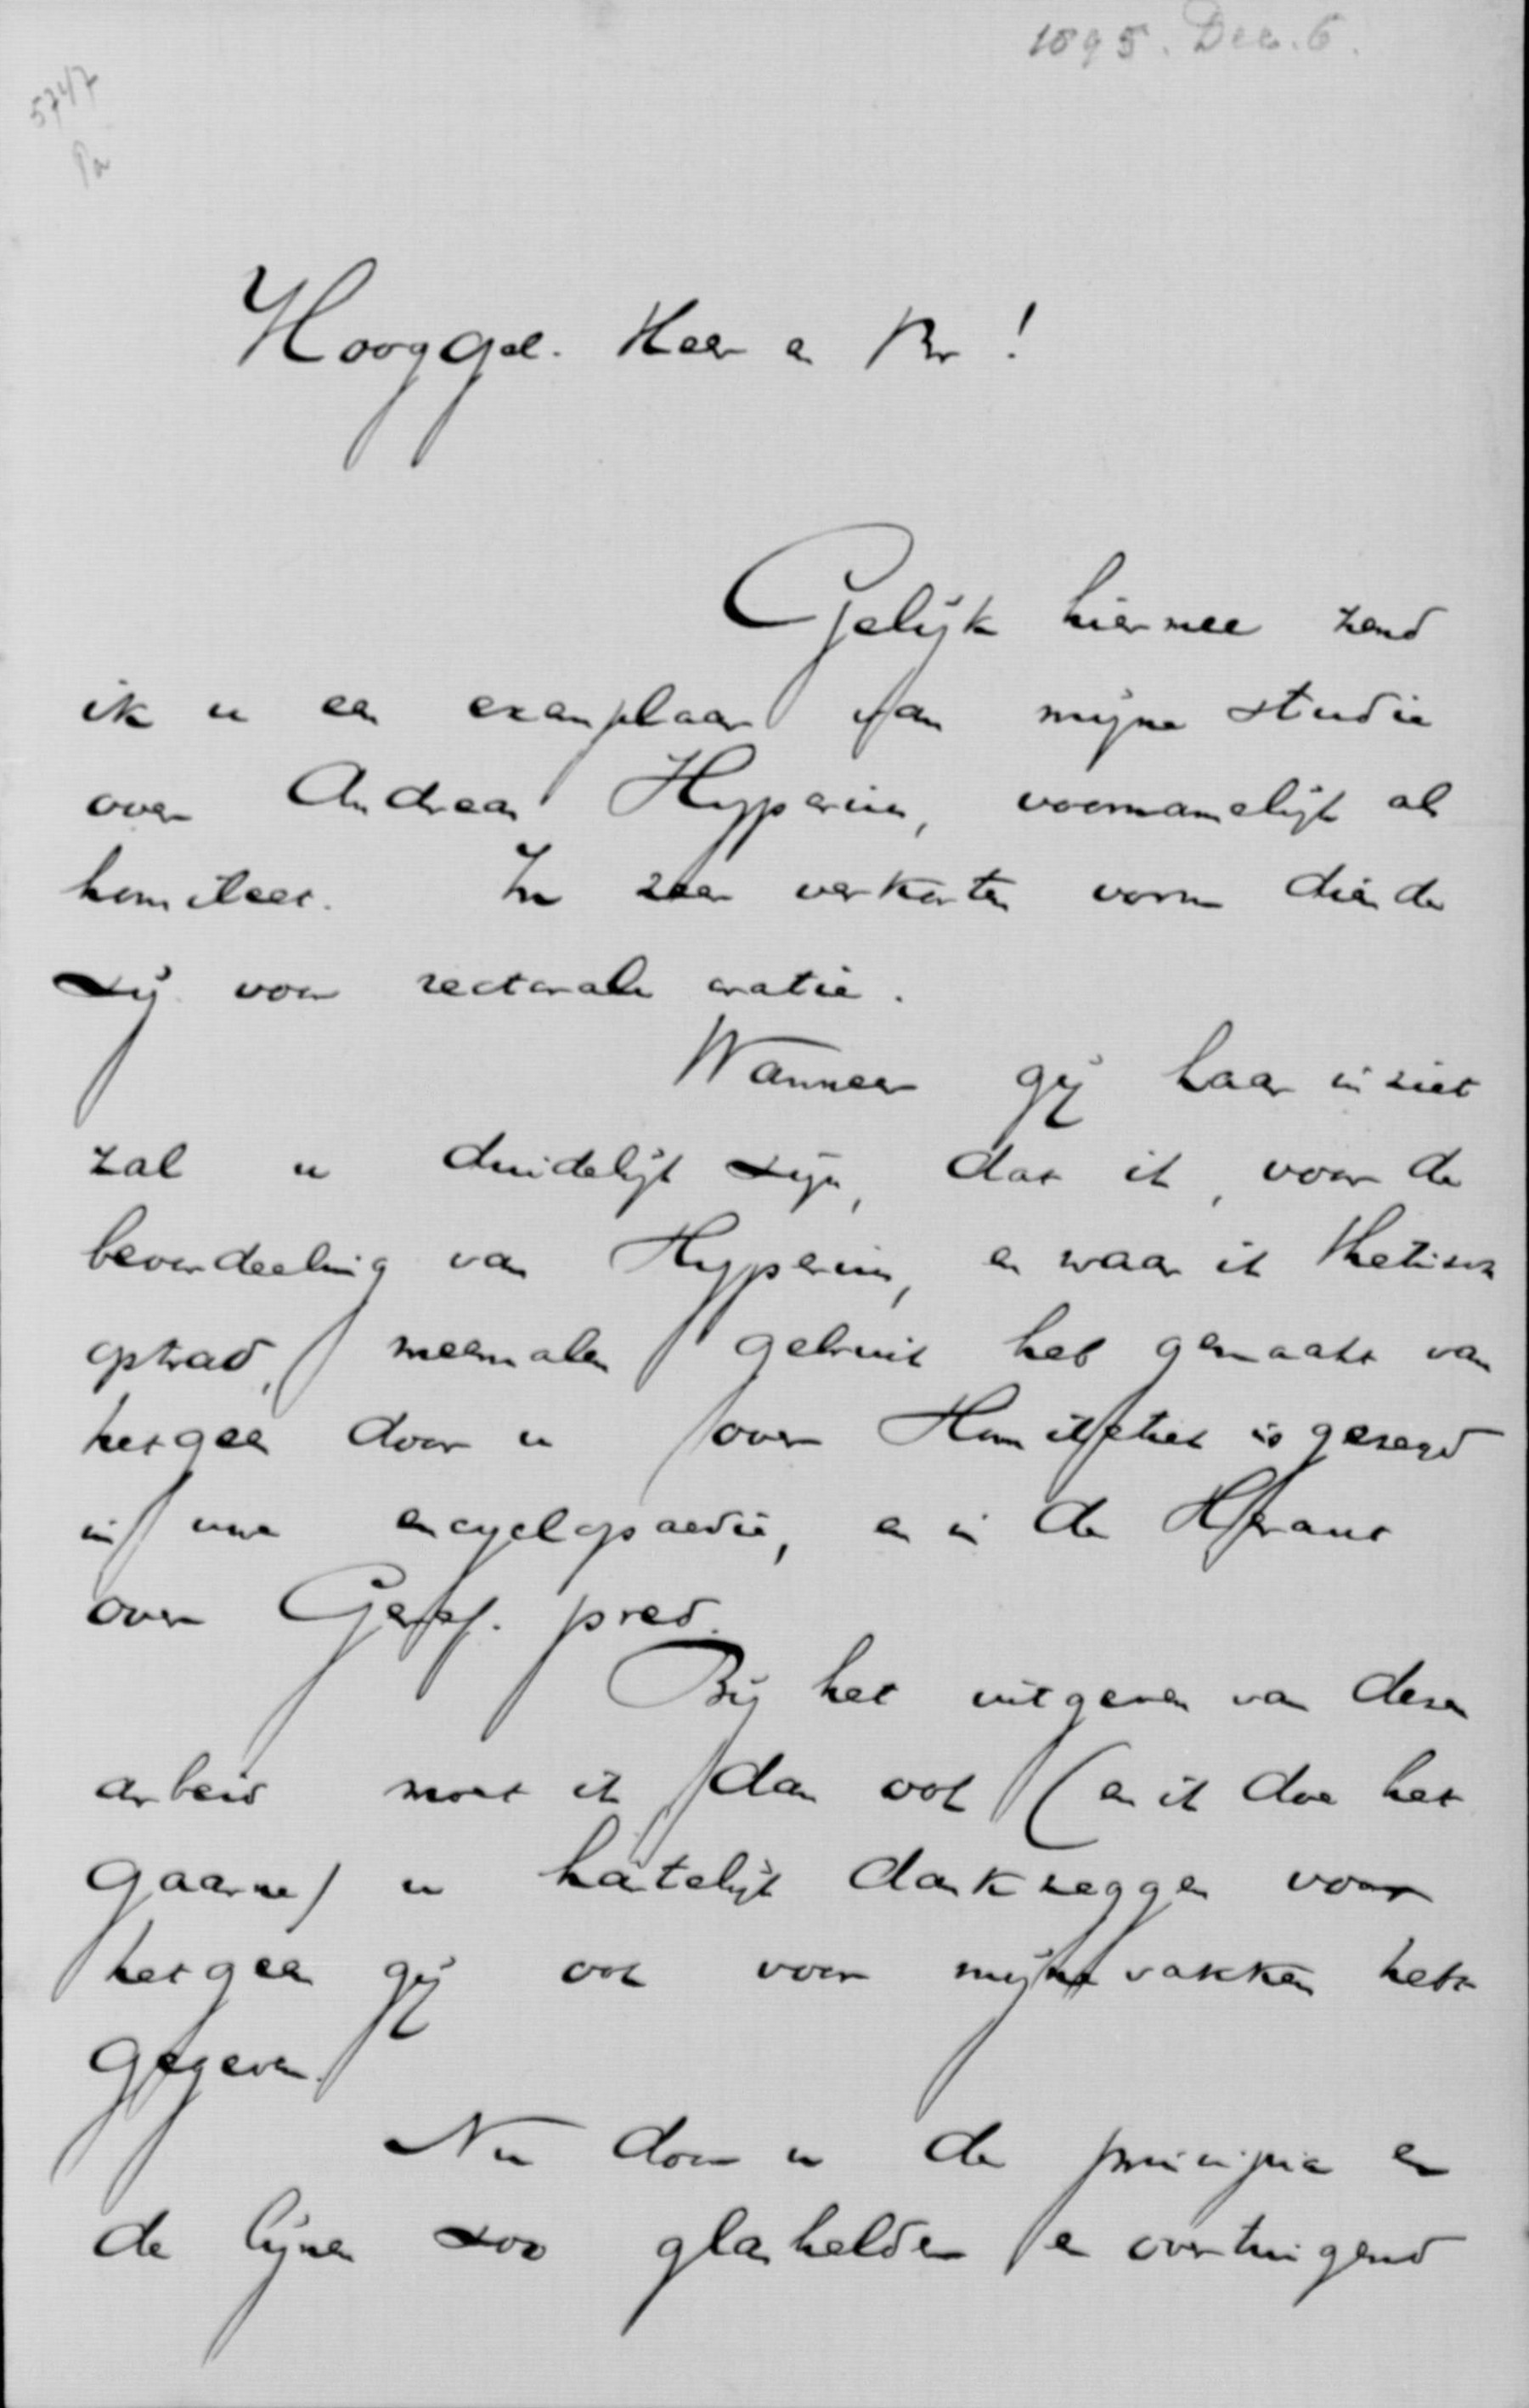 1895. Dec. 6.
5747
Pa
Hooggel. Heer en Br!
Gelijk hiermee zend
ik u een exemplaar van mijne studie
over Andreas Hyperius, voornamelijk als
homileet. In zeer verkorten vorm diende
zij voor rectorale oratie.
Wanneer gij haar inziet
zal u duidelijk zijn, dat ik, voor de
beoordeeling van Hyperius, en waar ik thetisch
optrad, meermalen gebruik heb gemaakt van
hetgeen door u over Homiletiek is gezegd
in uwe encyclopaedie, en in de Heraut
over Geref. pred.
Bij het uitgeven van dezen
arbeid moet ik dan ook (en ik doe het
gaarne) u hartelijk dankzeggen voor
hetgeen gij ook voor mijne vakken hebt
gegeven.
Nu door u de principia en
de lijnen zoo glashelder en overtuigend